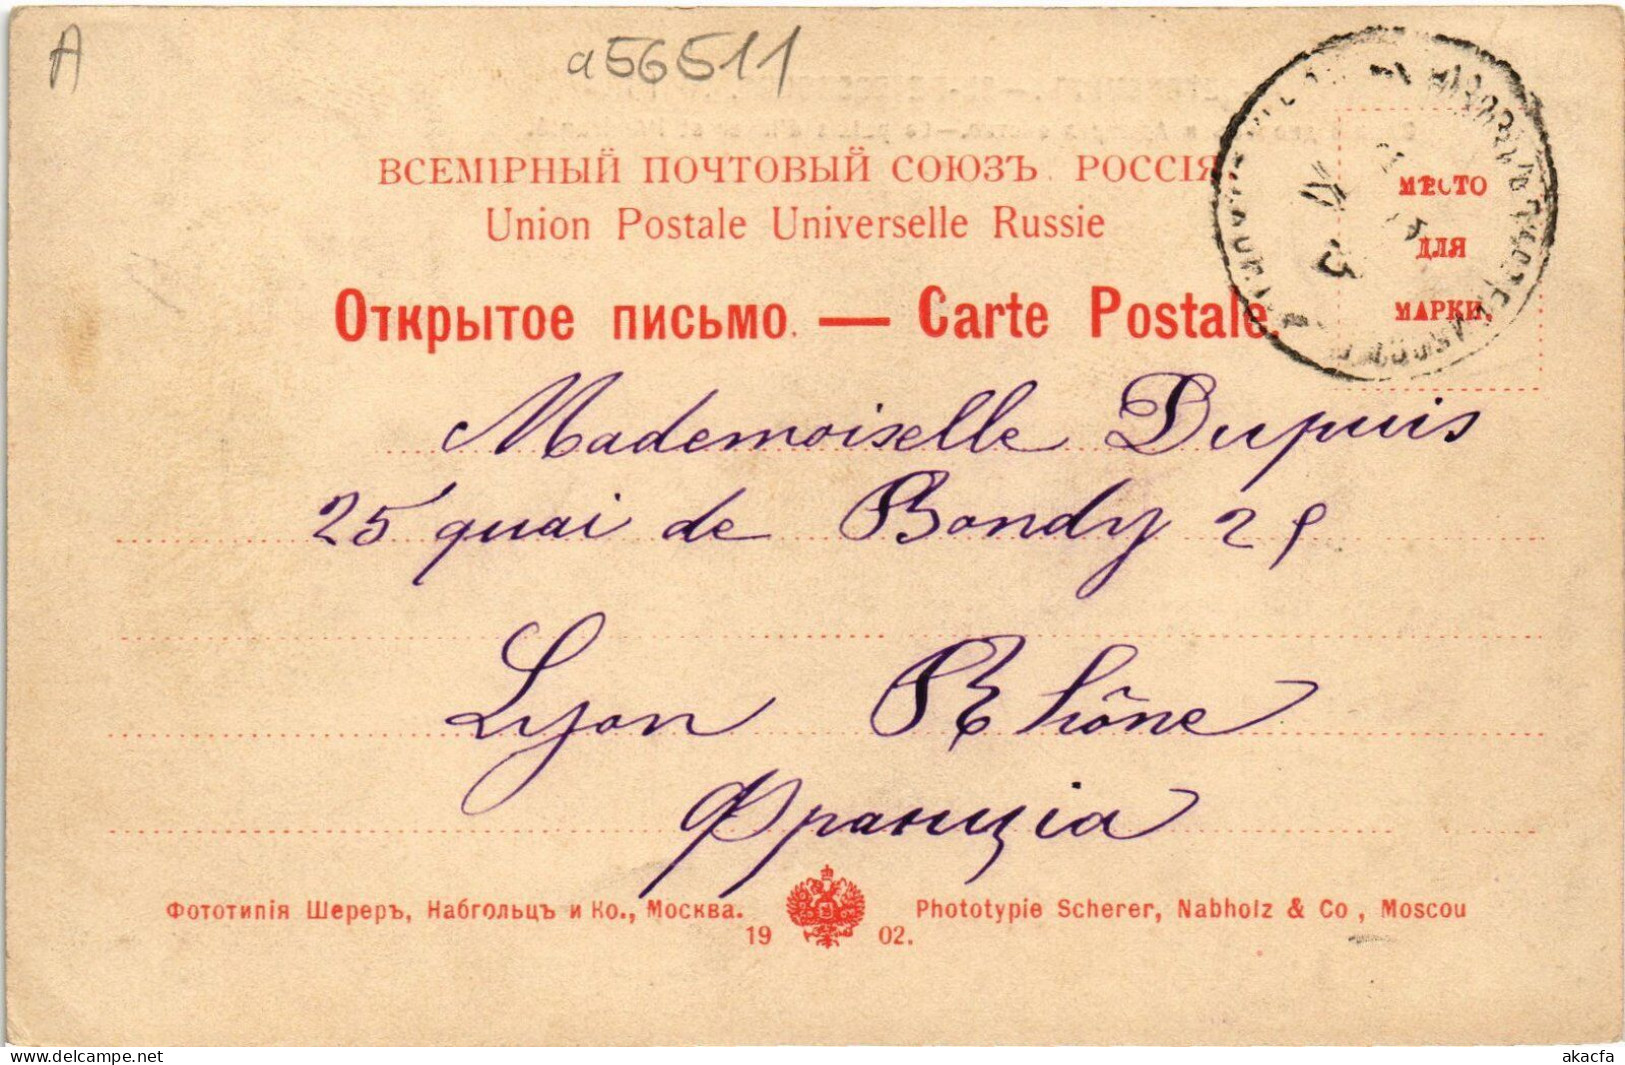 A
a56511
ВСЕМIРНЫЙ ПОЧТОВЫЙ СОЮЗЪ. РОССIЯ
Union Postale Universelle Russie
Открытое письмо. — Carte Postale.
МѢСТО
ДЛЯ
МАРКИ.
Mademoiselle Dupuis
25 quai de Bondy 25
Lyon Rhône
Францiя
Фототипiя Шереръ, Набгольцъ и Ко., Москва.
1902.
Phototypie Scherer, Nabholz & Co, Moscou
akacfa
www.delcampe.net